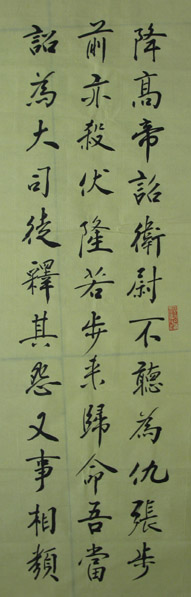 降高帝詔衛尉不聽為仇張步
前亦殺伏隆若步来歸命吾當
詔為大司徒釋其怨又事相類